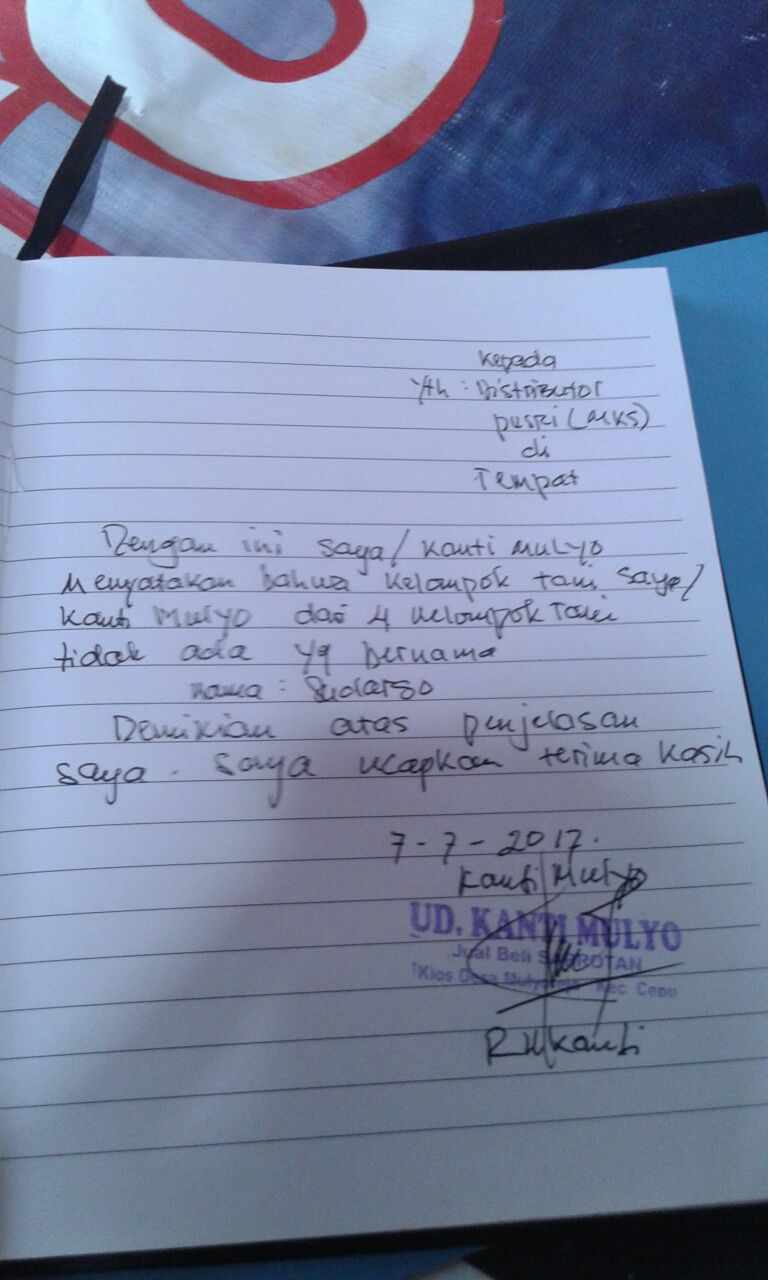 Kepada
Yth : Distributor
pusri (MKS)
di
Tempat
Dengan ini saya/ Kanti Mulyo
Menyatakan bahwa Kelompok tani saya/
Kanti Mulyo dari 4 Kelompok Tani
tidak ada yg bernama
nama : Sudarso
Demikian atas penjelasan
saya. saya ucapkan terima kasih
7-7-2017.
Kanti Mulyo
UD. KANTI MULYO
Jual Beli SAPROTAN
Kios Desa Kec Cepu
Kanti